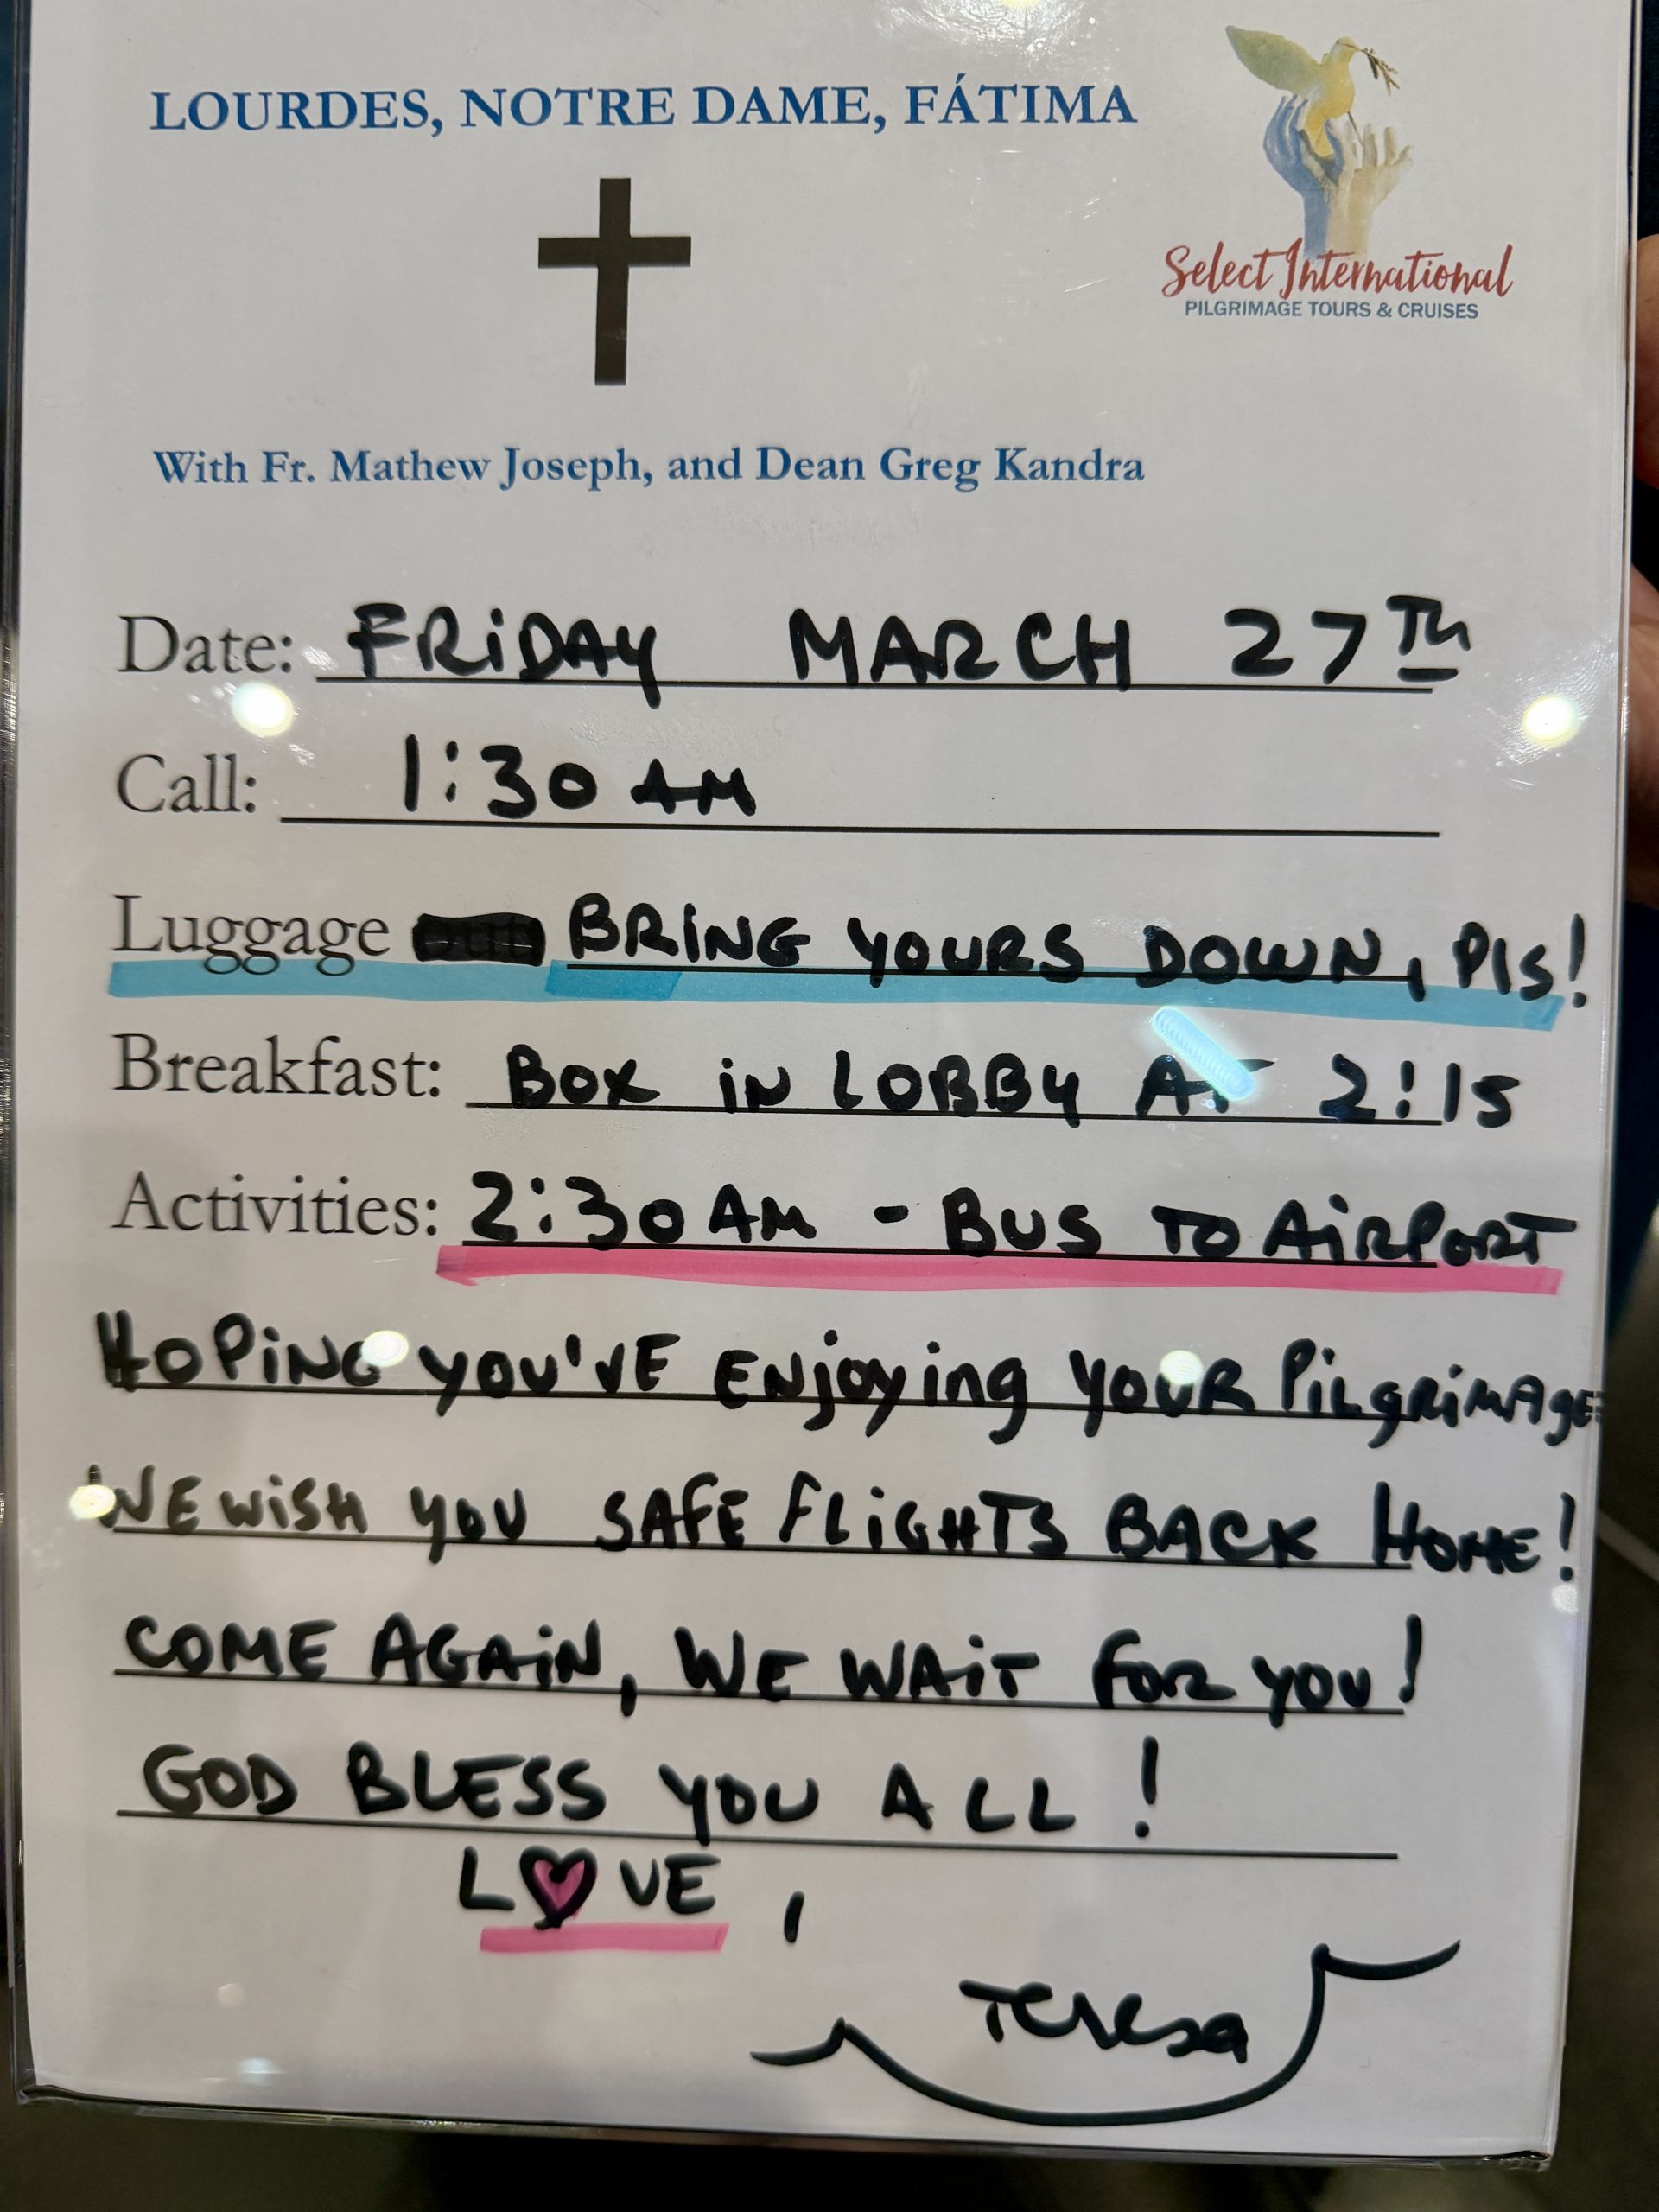 LOURDES, NOTRE DAME, FÁTIMA
Select International
PILGRIMAGE TOURS & CRUISES
With Fr. Mathew Joseph, and Dean Greg Kandra
Date: FRiDAY MARCH 27TH
Call: 1:30 AM
Luggage BRING YOURS DOWN, PLS!
Breakfast: BOX iN LOBBY AT 2:15
Activities: 2:30 AM - BUS TO AiRPORT
HOPiNG YOU'VE ENjoying YOUR PiLgRiMAgE
WE WiSH YOU SAFE FLiGHTS BACK HOME!
COME AGAiN, WE WAiT FOR YOU!
GOD BLESS YOU ALL!
L♥VE,
Teresa